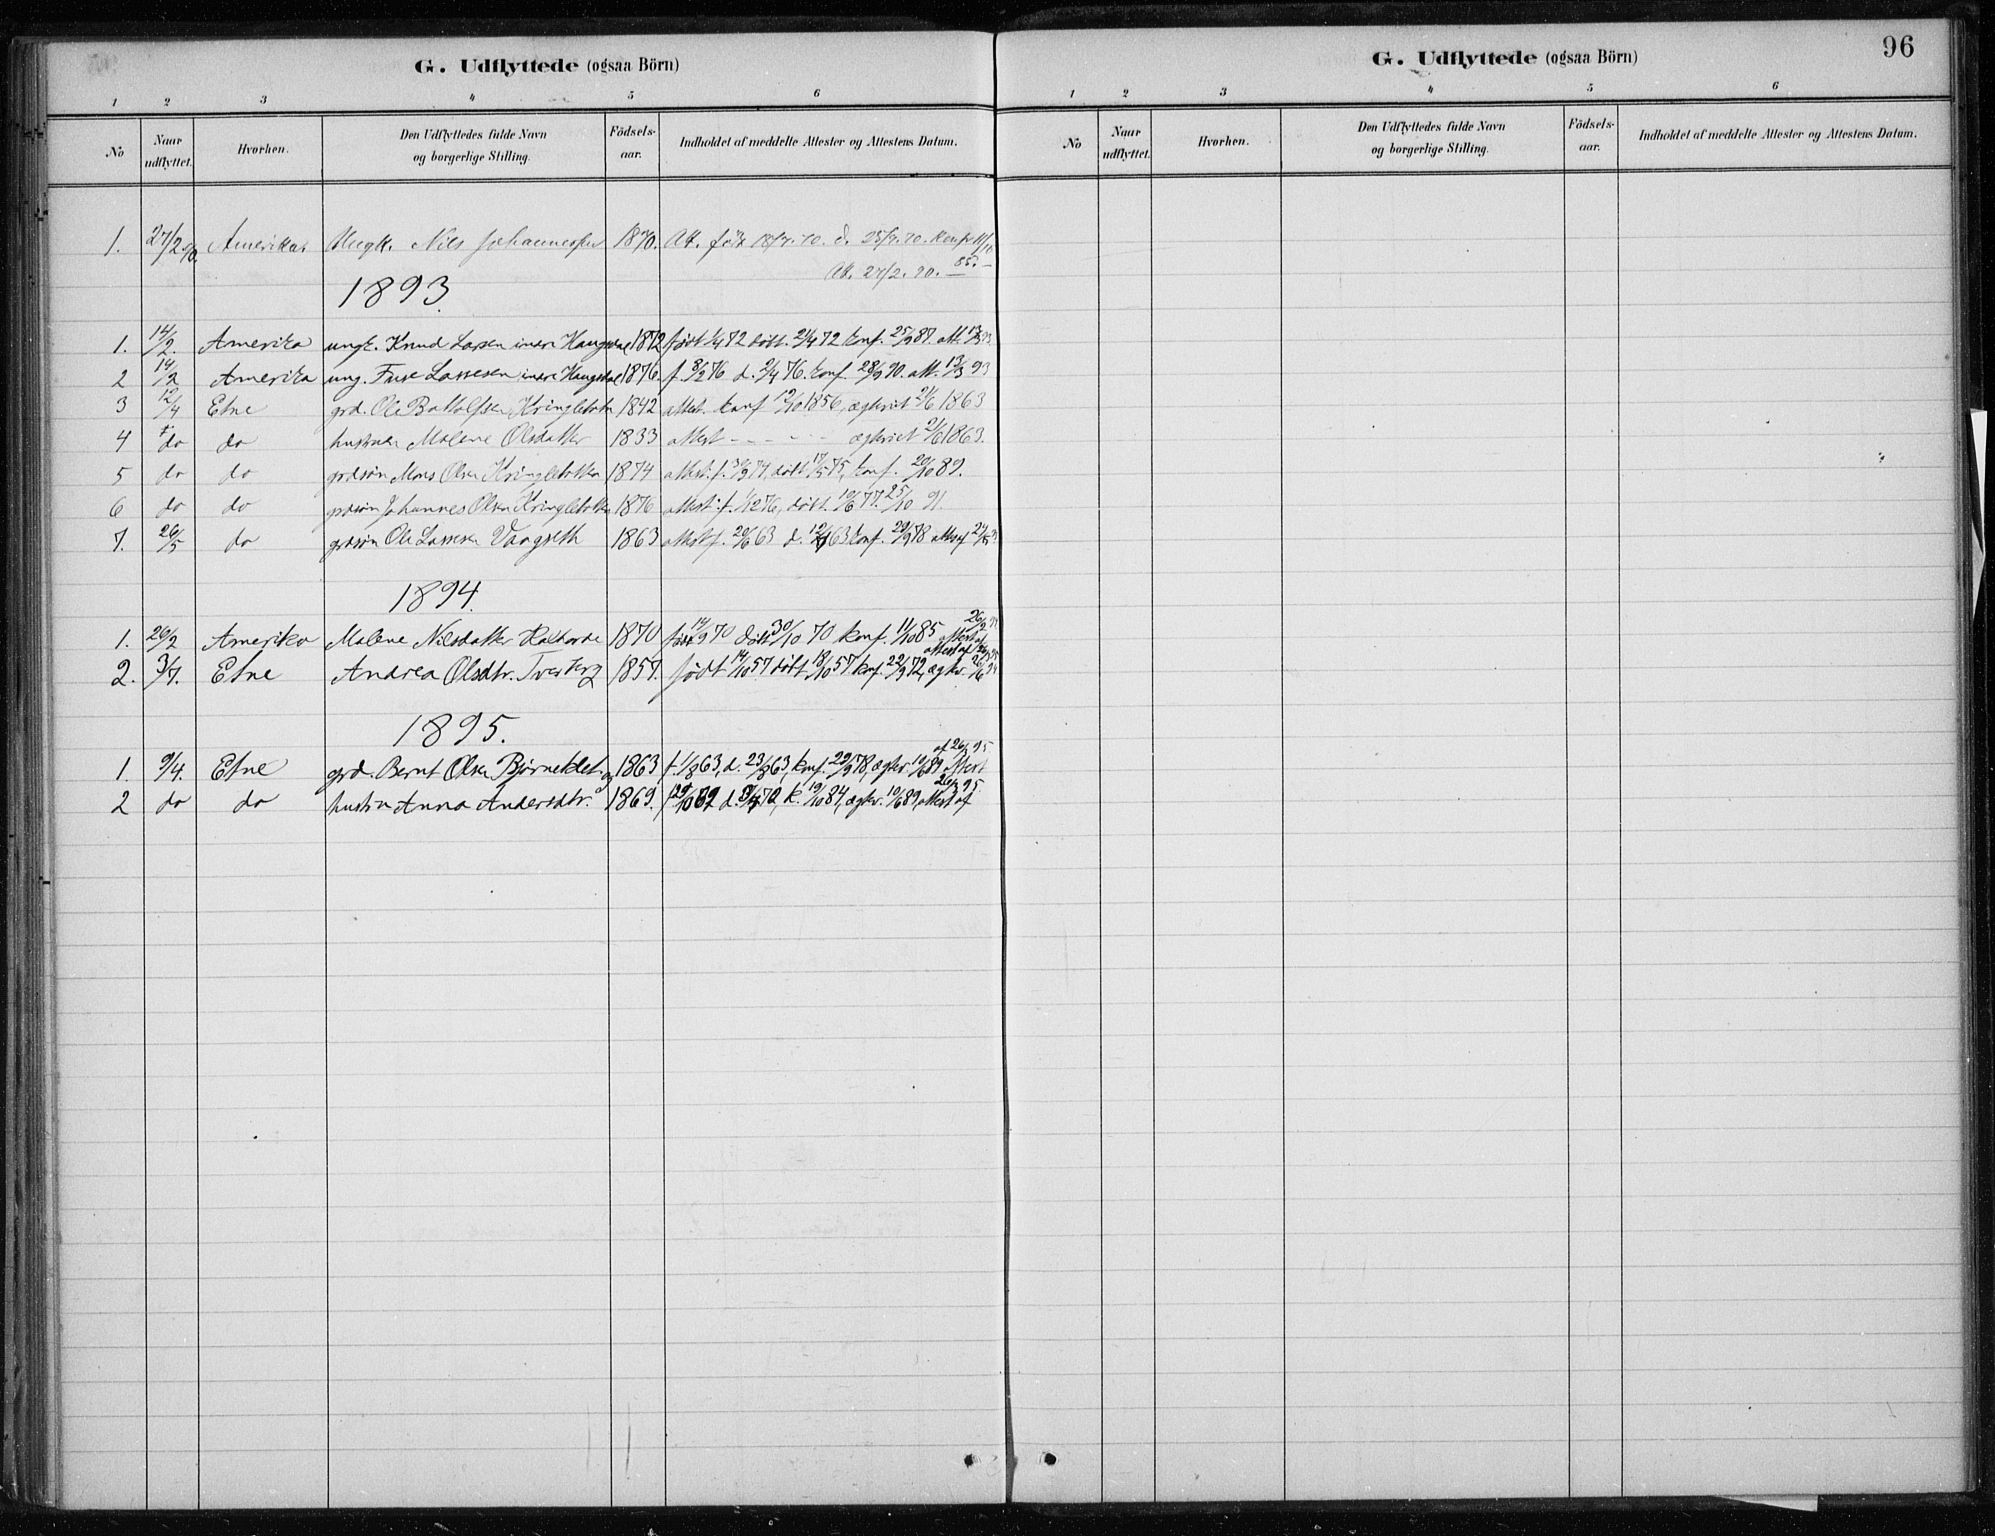 G. Udflyttede (ogsaa Börn)
1 2 3 4 5 6
No Naar udflyttet. Hvorhen. Den Udflyttedes fulde Navn og borgerlige Stilling. Födsels-aar. Indholdet af meddelte Attester og Attestens Datum.
1. 27/2 90. Amerika Ungk. Nils Johannessen 1870. Att. född 18/9. 70. d. 25/9. 70. Konf. 11/10 85.
Att. 27/2. 90.
1893.
1. 14/2. Amerika ungk. Knud Larsen indre Haugsdal 1872 født 1/4 72 døbt. 21/4 72 konf. 25/9 87. att. 13/3 93
2 14/2 Amerika ung. Lassesen indre Haugsdal 1876. f. 8/2 76 d. 2/4 76. konf. 28/9 90. att. 13/3 93
3 12/4 Etne grd. Ole Kringlebotn 1842 attest. konf 12/10 1856, ægteviet 21/6 1863
4 do do hustruen Malene Olsdatter 1833 attest - - - - - ægteviet 21/6 1863.
5 do do grdsøn Mons Olsen Kringlebotten 1874 attest. f. 30/9 74, døbt 17/5 75, konf. 20/10 89.
6 do do grdsøn Johannes Olsen Kringlebotten 1876 attest: f. 1/12 76, døbt. 10/6 77. 25/10 91.
7. 26/5 do grdsøn Ole Lassesen Vaagseth 1863 attest f. 20/6 63 d. 12/7 63 konf. 29/9 78 attest af 24/5
1894.
1. 26/2 Amerika Malene Nilsdatter 1870 født 14/9 70 døbt 30/10 70 konf. 11/10 85 attest af 26/2
2. 3/7. Etne Andrea Olsdtr. Tveit 1857. født 14/10 57 døbt 18/10 57 konf. 22/9 72, ægtv. attest af
1895.
1. 9/4. Etne grd. Bernt Olsen Bjørneklet og 1863 f. 1/8 63, d. 23/8 63, konf. 29/9 78, ægtev. 10/6 89 attest af 26/3 95.
2 do do hustru Anna Andersdtr. 1869. f. 29/10 69 d. 70, k. 19/10 84, ægtev. 10/6 89, attest af 26/3 95.
G. Udflyttede (ogsaa Börn)
96
1 2 3 4 5 6
No Naar udflyttet. Hvorhen. Den Udflyttedes fulde Navn og borgerlige Stilling. Födsels-aar. Indholdet af meddelte Attester og Attestens Datum.